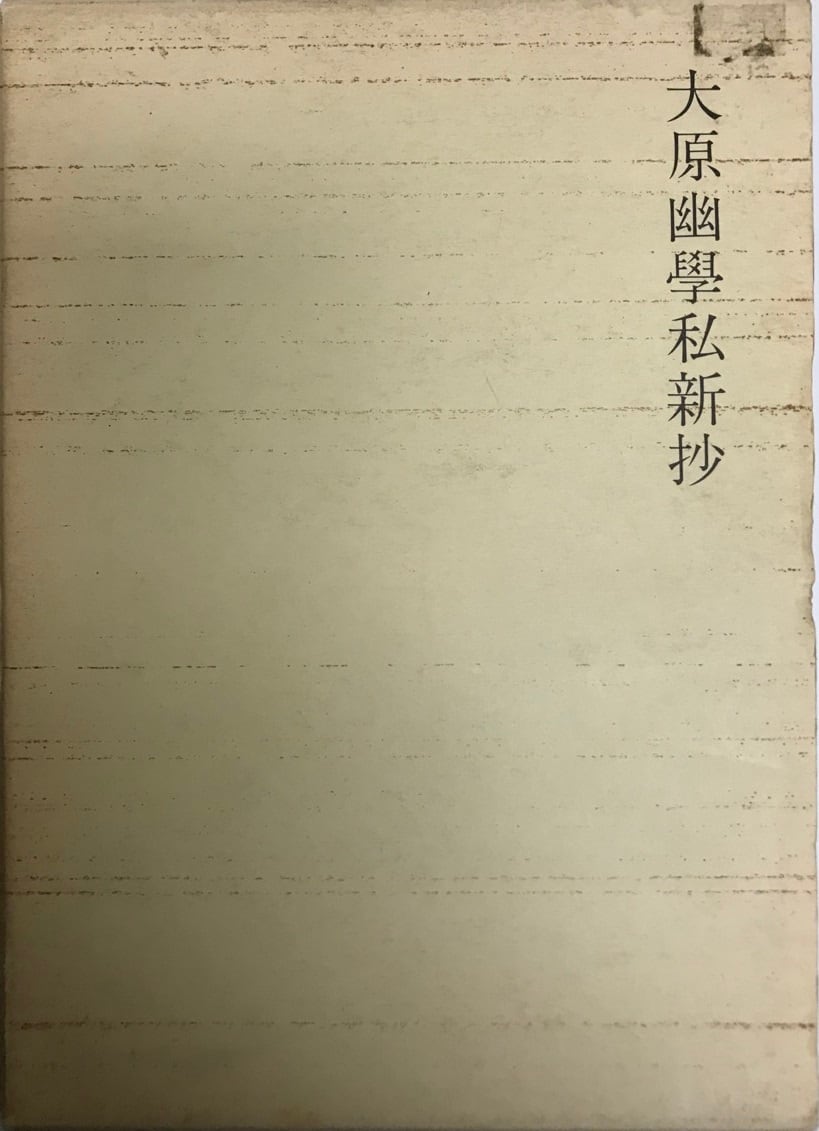 大原幽學私新抄